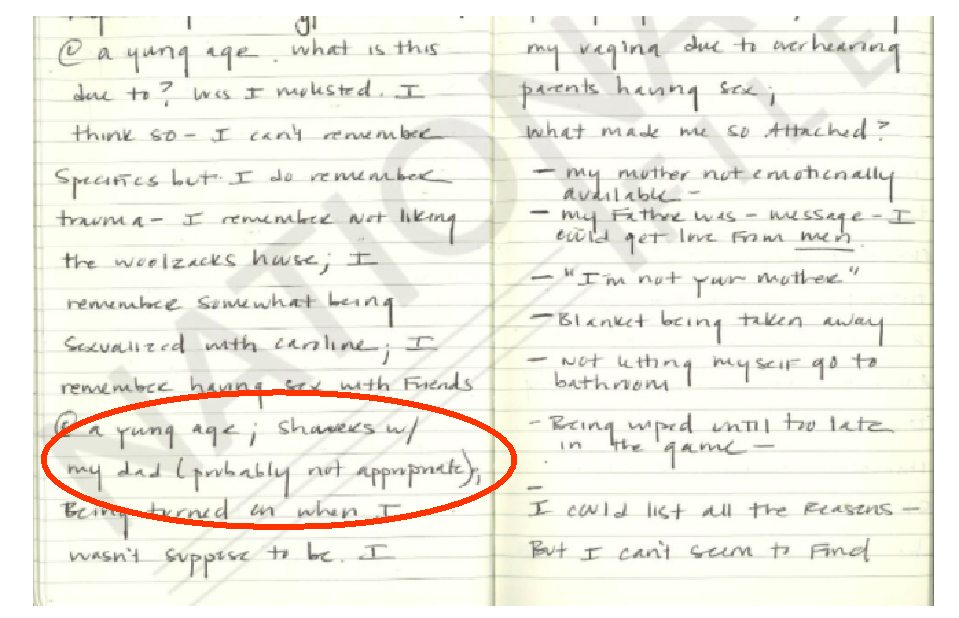 @ a yung age. what is this
due to? Was I molested. I
think so - I can't remember
Specifics but I do remember
trauma - I remember not liking
the woolzacks house; I
remember somewhat being
sexualized with caroline; I
remember having sex with Friends
@ a yung age; showers w/
my dad (probably not appropriate);
Being turned on when I
wasn't suppose to be. I
my vagina due to overhearing
parents having sex;
what made me so Attached?
- my mother not emotionally
available -
- my Father was - message - I
could get love From men
- "I'm not your mother"
- Blanket being taken away
- not letting myself go to
bathroom
- Being wiped until too late
in the game -
-
I could list all the Reasons -
But I can't seem to Find
NATIONAL
FILE